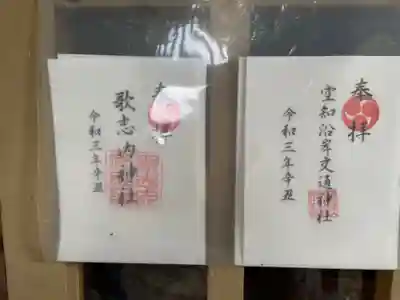 奉拝
歌志内神社
令和三年辛丑
奉拝
空知沿岸交通神社
令和三年辛丑